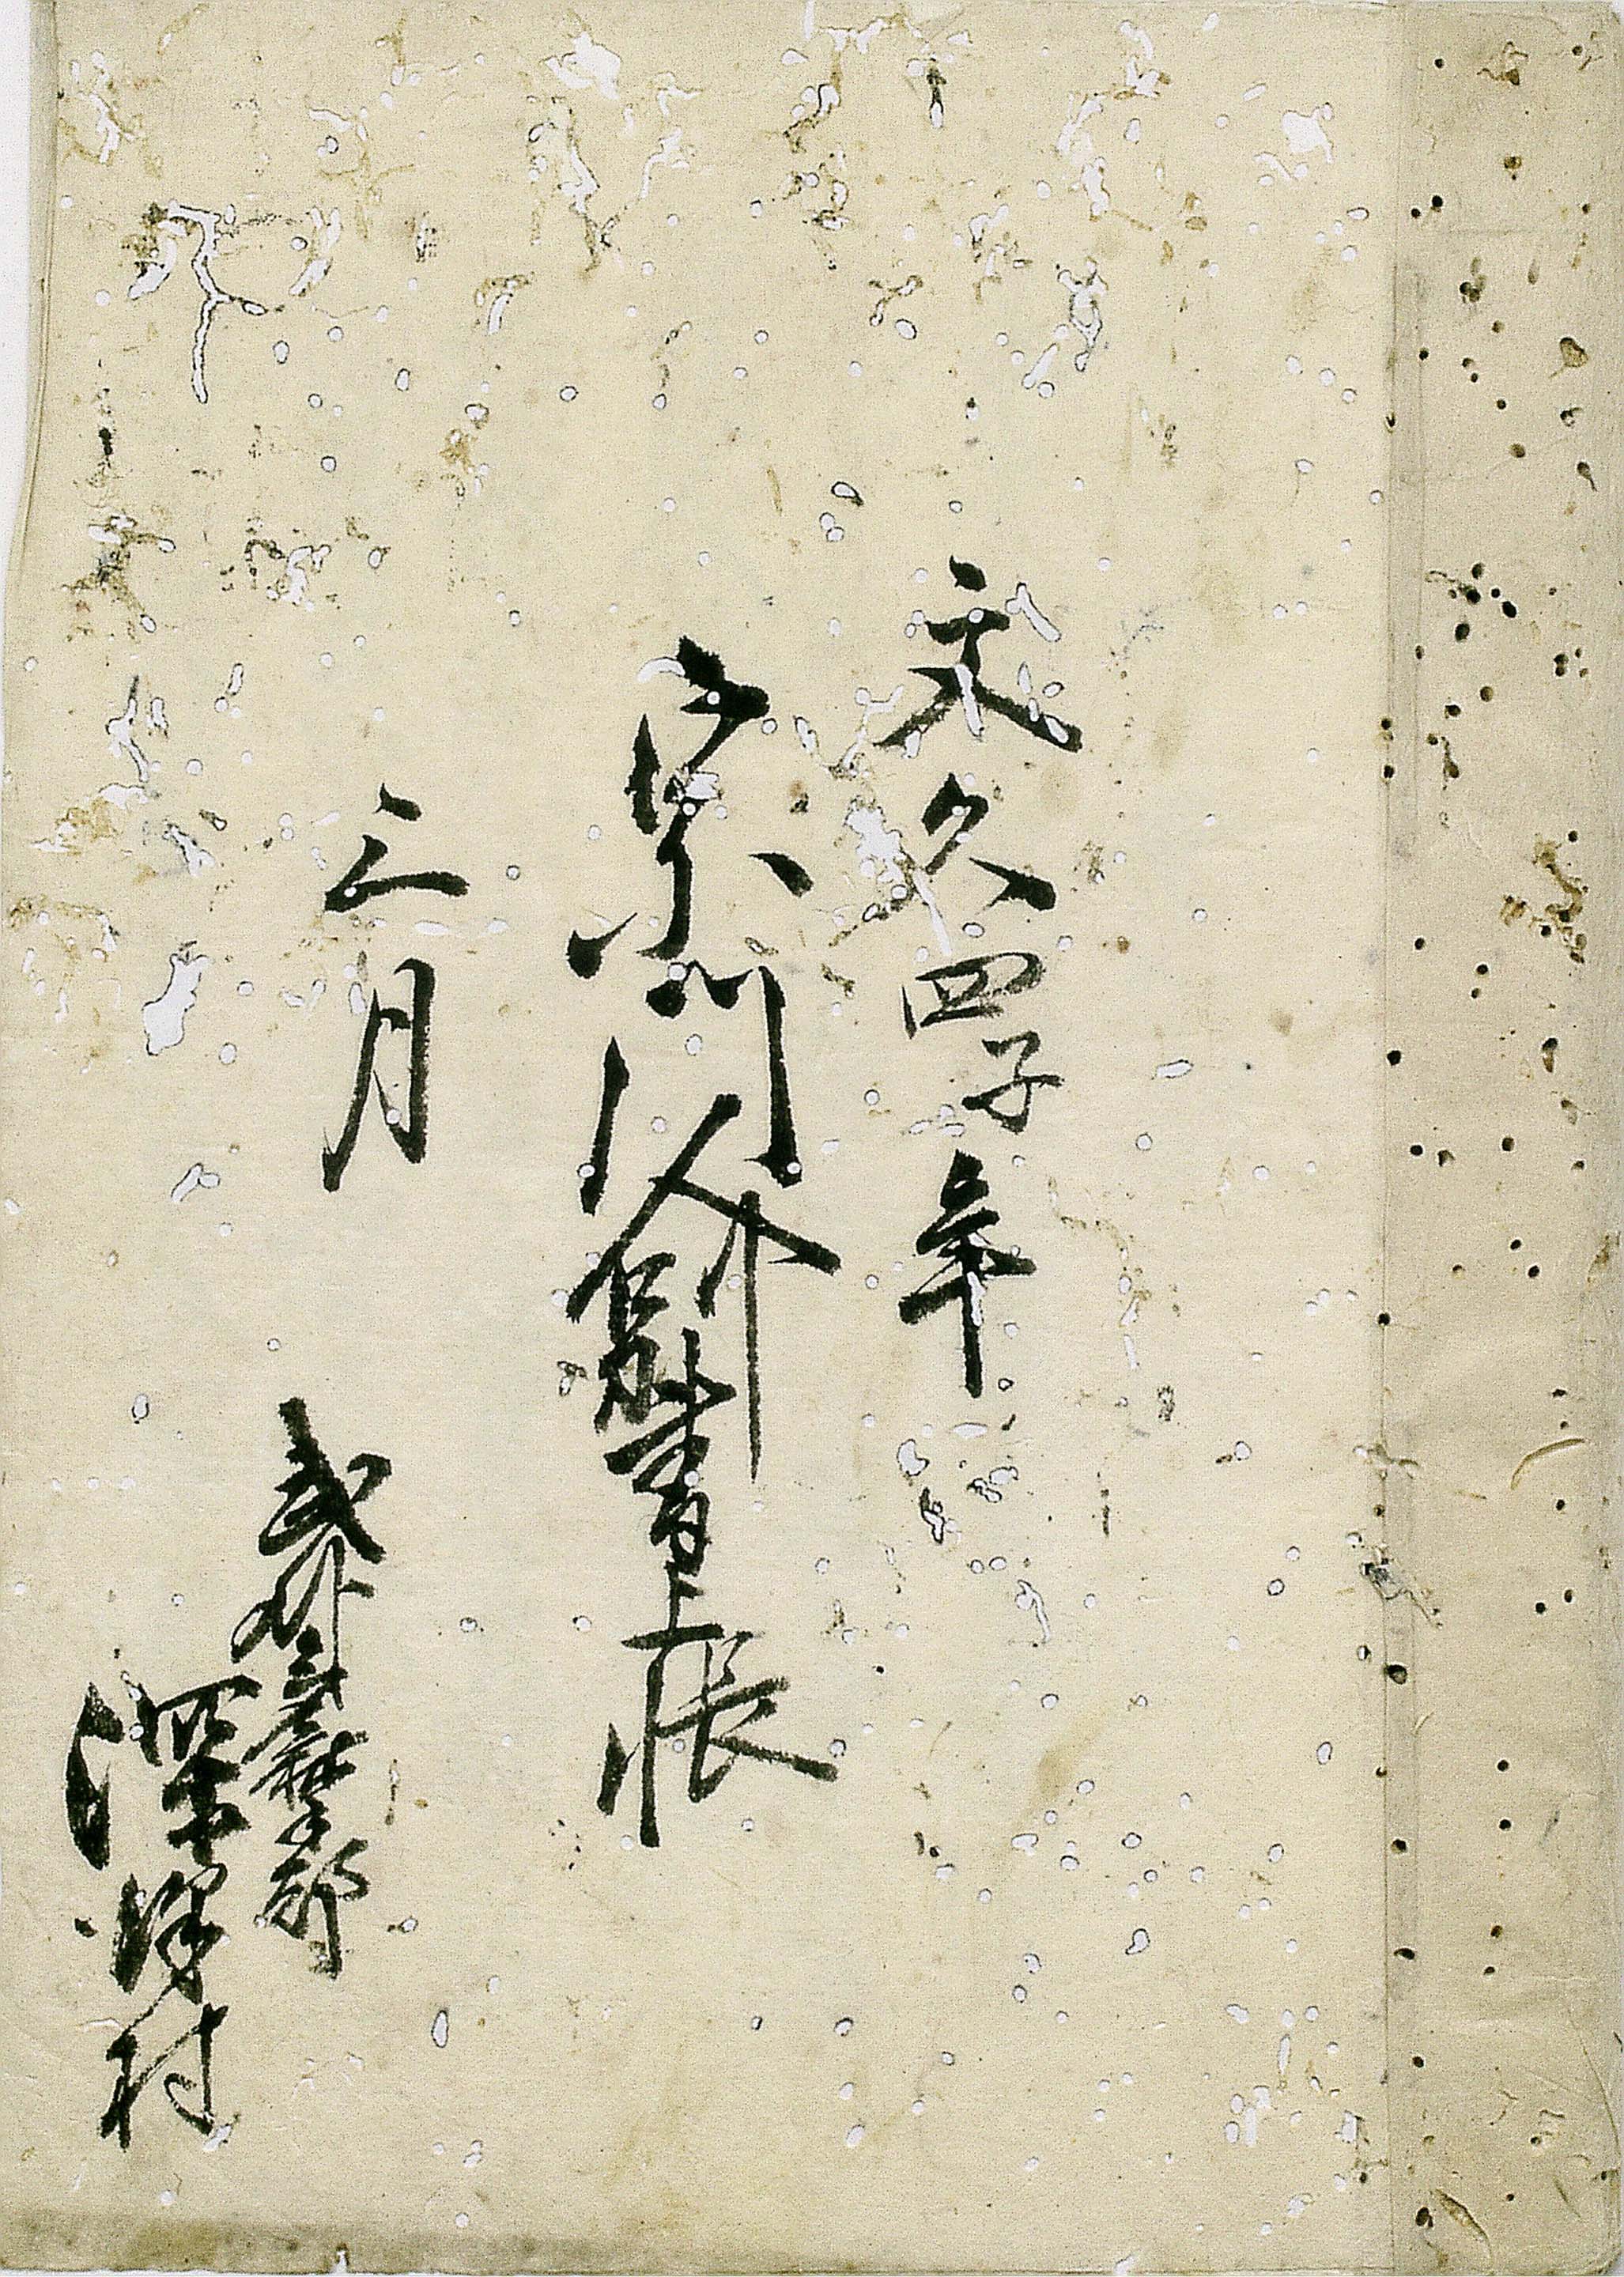 文久四子年
宗門人別書上帳
三月
武州郡
深澤村